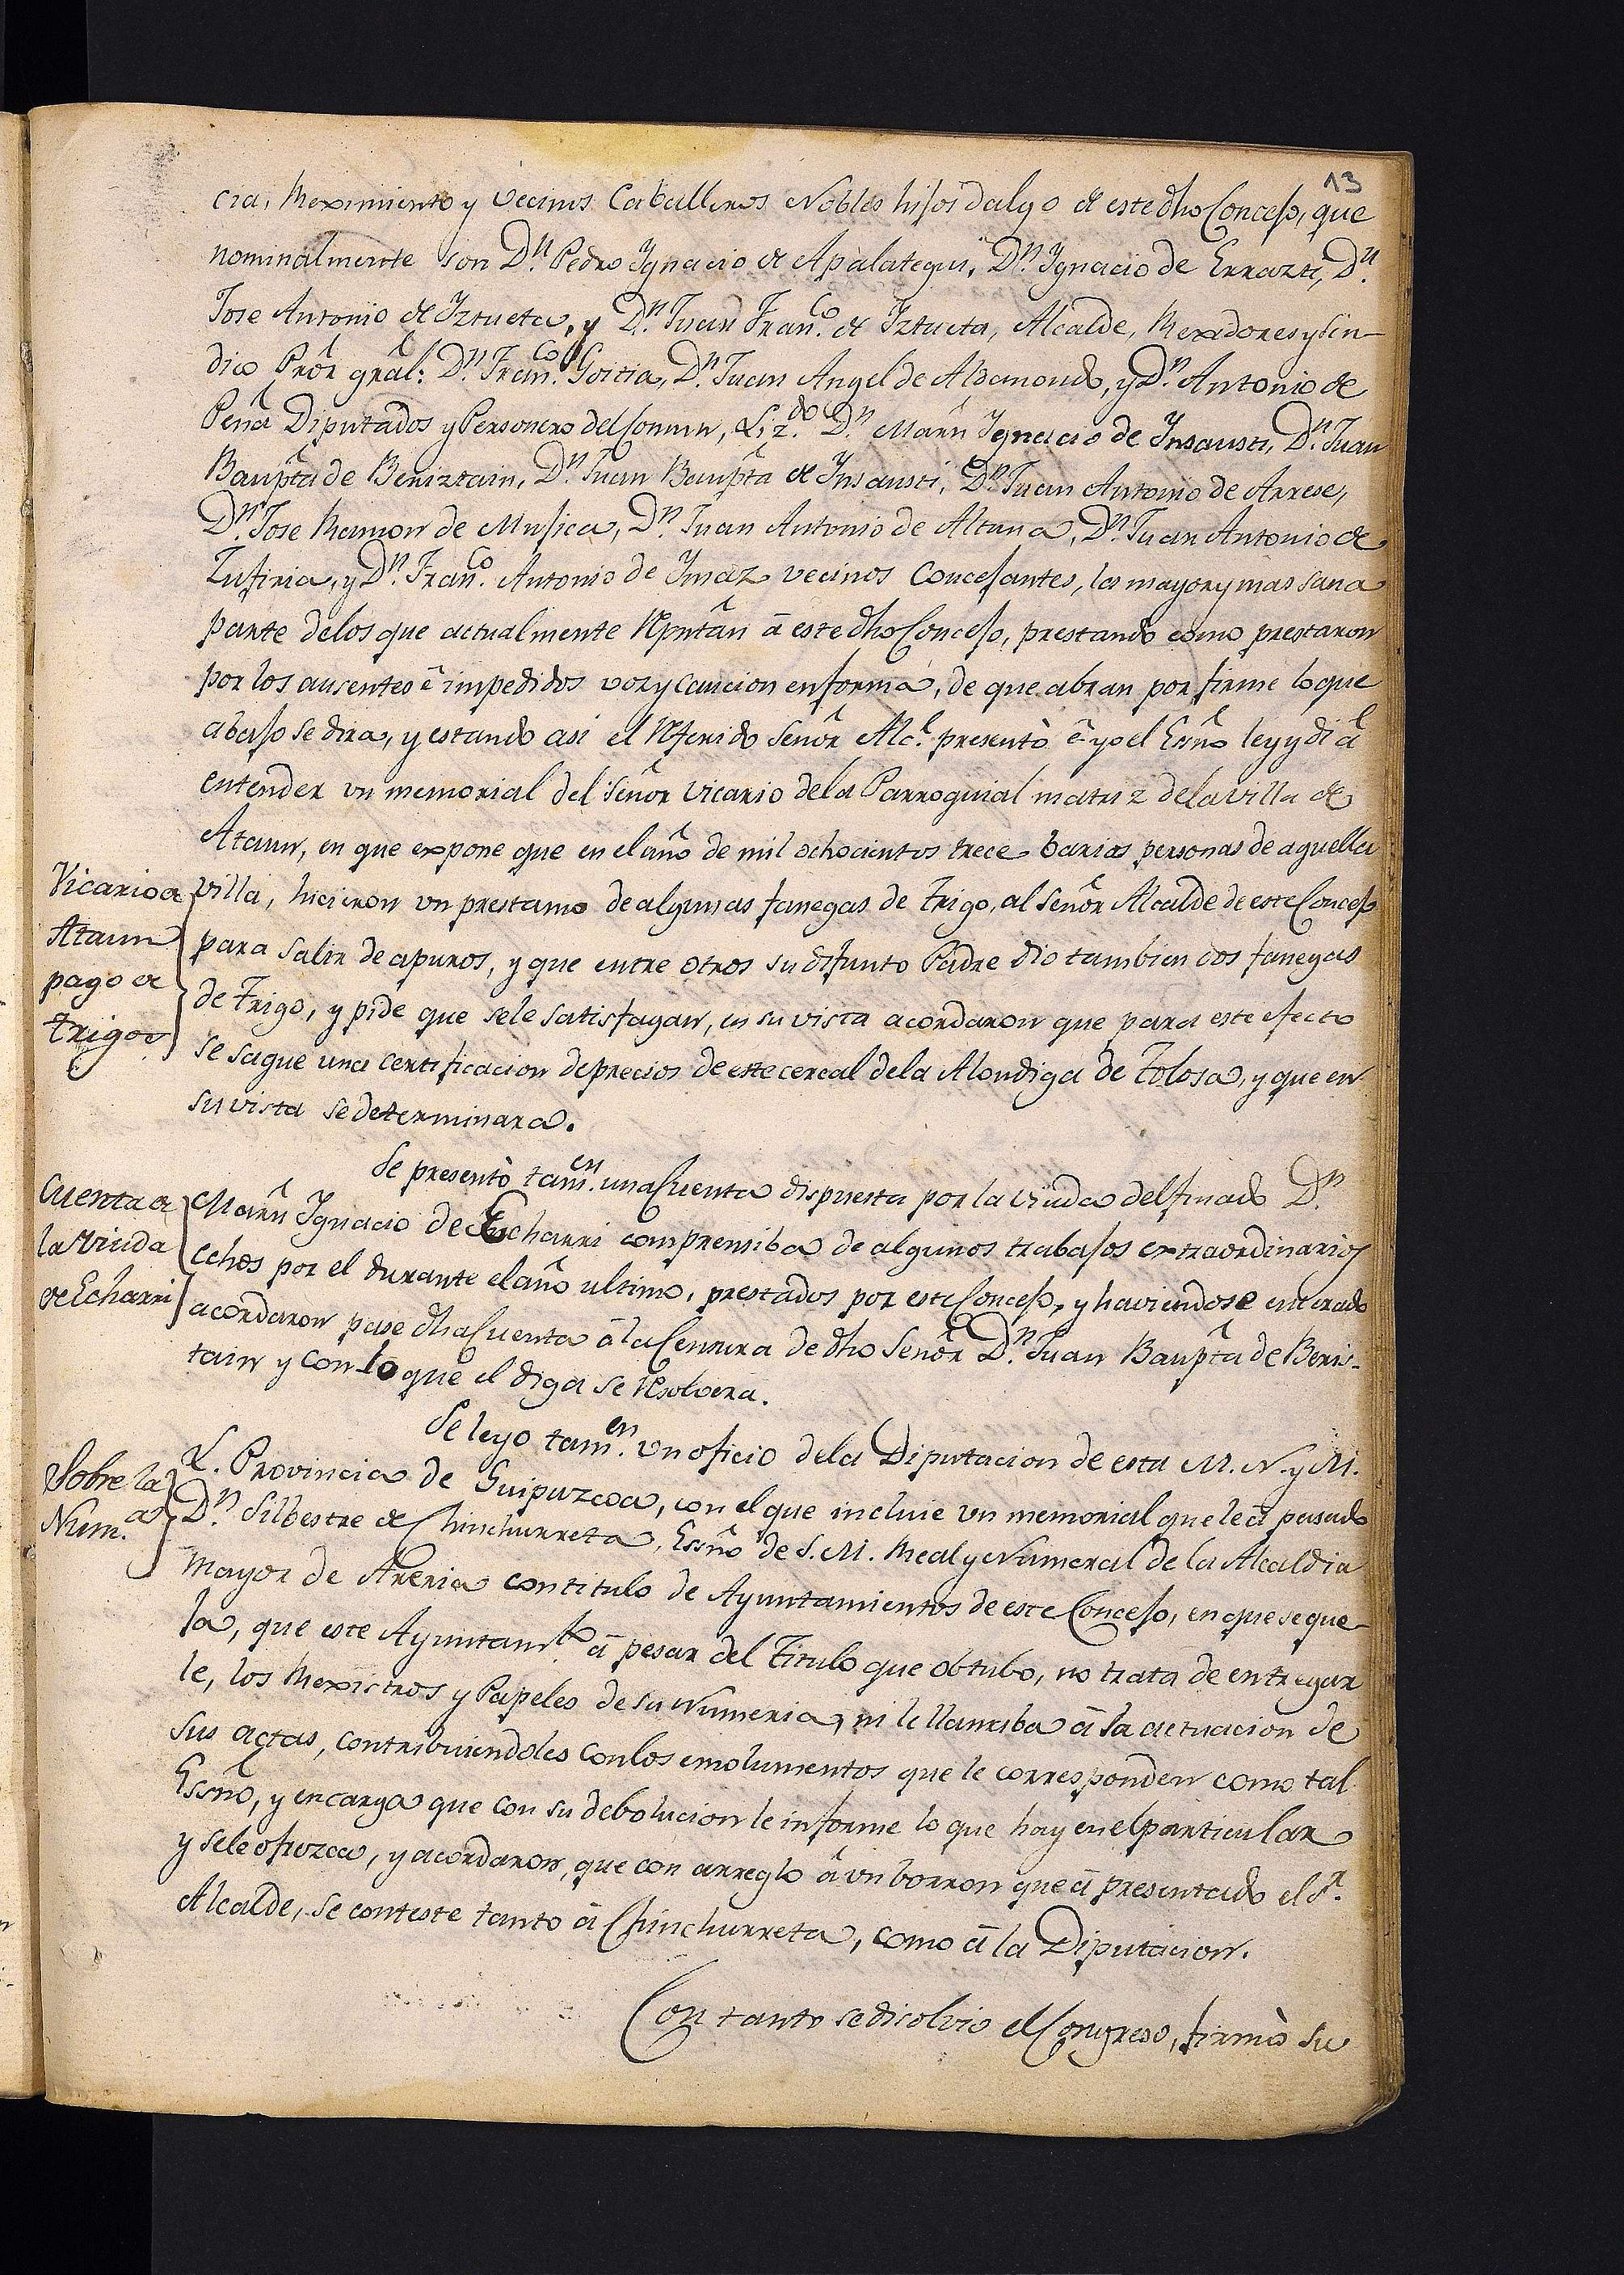 13
cia, Reximiento y vecinos Caballeros Nobles hijos dalgo de este dho Concejo, que
nominalmente son Dn. Pedro Ygnacio de Apalategui, Dn. Ygnacio de Errazti, Dn.
Jose Antonio de Yztueta, y Dn. Juan Franco. de Iztueta, Alcalde, Rexidores y Sin-
dico Prôr grâl: Dn. Franco. Goitia, Dn. Juan Angel de Aldamondo, y Dn. Antonio de
Peña Diputados y Personero del Comun, Lizdo. Dn. Marñ Ygnacio de Ynsausti, Dn. Juan
Baupta de Beniztain, Dn. Juan Baupta de Ynsausti, Dn. Juan Antonio de Arrese,
Dn. Jose Ramon de Mujica, Dn. Juan Antonio de Altuna, Dn. Juan Antonio de
Zufiria, y Dn. Franco. Antonio de Ymaz vecinos Concejantes, la mayor y mas sana
parte delos que actualmente Rpntân â este dho Concejo, prestando como prestaron
por los ausentes ê impedidos voz y caucion en forma, de que abran por firme lo que
abajo se dira, y estando asi el Referido Señôr Alce. presentò ê yo el Essño ley y di â
entender un memorial del señor Vicario dela Parroquial matriz dela villa de
Ataun, en que expone que en el año de mil ochocientos trece barias personas de aquella
Vicario de
Ataun
pago de
trigos
villa, hicieron un prestamo de algunas fanegas de trigo, al señôr Alcalde de este Concejo
para salir de apuros, y que entre otros su difunto Padre dio tambien dos fanegas
de trigo, y pide que sele satisfagan, en su vista acordaron que para este efecto
se saque una certificacion de precios de este cereal dela Alondiga de Tolosa, y que en
su vista se determinara.
Se presentò tamen. una Cuenta dispuesta por la viuda del finado Dn.
Cuenta de
la viuda
de Echarri
Marñ Ygnacio de Echarri comprensiba de algunos trabajos extraordinarios
echos por el durante el año ultimo, prestados por este Concejo, y haviendose enterado
acordaron pase dha Cuenta â la Censura de dho Señôr Dn. Juan Baupta de Beris-
tain y con lo que el diga se Resolvera.
Se leyo tamen. un oficio dela Diputacion de esta M. N. y M.
Sobre la
Numa.
L. Provincia de Guipuzcoa, con el que incluie un memorial que le â pasado
Dn. Silbestre de Chinchurreta, Essño de S. M. Real y Numeral de la Alcaldia
mayor de Areria con titulo de Ayuntamientos de este Concejo, en que se que-
ja, que este Ayuntamto. â pesar del Titulo que obtubo, no trata de entregar
le, los Rexistros y Papeles de su Numeria, ni le llamaba â la actuacion de
sus actas, contribuiendoles con los emolumentos que le corresponden como tal
Essño, y encarga que con su debolucion le informe lo que hay en el particular
y sele ofrezca, y acordaron, que con arreglo â un borron que â presentado el Sr.
Alcalde, se conteste tanto â Chinchurreta, como â la Diputacion.
Con tanto se disolvio el Congreso, firmò su